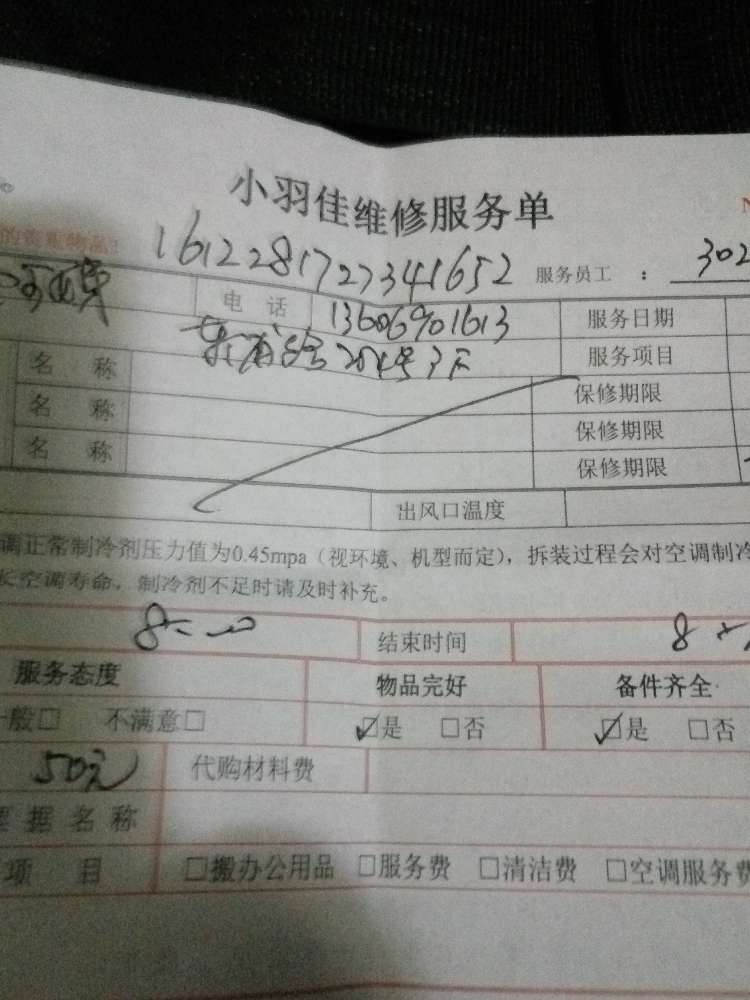 小羽佳维修服务单
的贵重物品!
1612281727341652 服务员工 : 302
电 话 13606901613 服务日期
204号 服务项目
名 称 保修期限
名 称 保修期限
名 称 保修期限
出风口温度
调正常制冷剂压力值为0.45mpa（视环境、机型而定），拆装过程会对空调制冷
长空调寿命，制冷剂不足时请及时补充。
结束时间 8
服务态度 物品完好 备件齐全
一般□ 不满意□ ☑是 □否 ☑是 □否
50元 代购材料费
票据名称
项 目 □搬办公用品 □服务费 □清洁费 □空调服务费